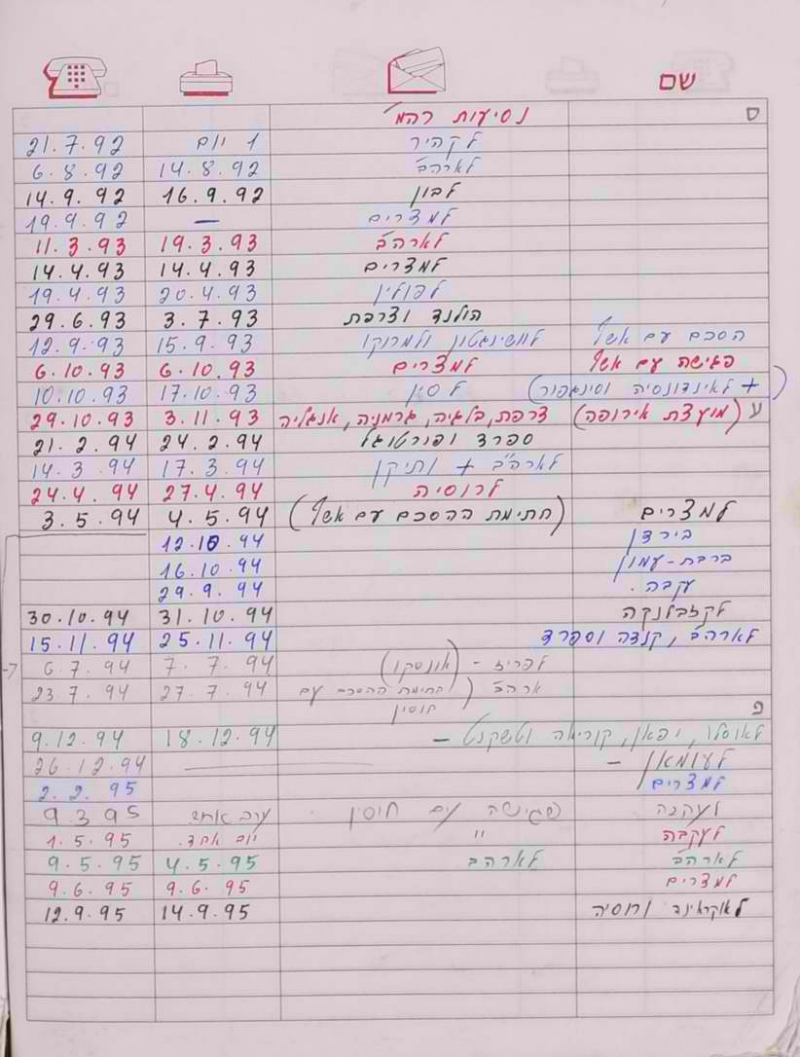 שם
ס נסיעות רהמ'
לקהיר 1 יום 21.7.92
לארה"ב 14.8.92 6.8.92
לבון 16.9.92 14.9.92
למצרים — 19.9.92
לארה"ב 19.3.93 11.3.93
למצרים 14.4.93 14.4.93
לפולין 20.4.93 19.4.93
הולנד וצרפת 3.7.93 29.6.93
הסכם עם אשף לוושינגטון ולמרוקו 15.9.93 12.9.93
פגישה עם אשף למצרים 6.10.93 6.10.93
(+ לאינדונסיה וסינגפור) לסין 17.10.93 10.10.93
ע (מועצת אירופה) צרפת, בלגיה, גרמניה, אנגליה 3.11.93 29.10.93
ספרד ופורטוגל 24.2.94 21.2.94
לארה"ב + ותיקן 17.3.94 14.3.94
לרוסיה 27.4.94 24.4.94
למצרים (חתימת ההסכם עם אשף) 4.5.94 3.5.94
בירדן 12.10.94
ברבת-עמון 16.10.94
עקבה. 29.9.94
לקזבלנקה 31.10.94 30.10.94
לארה"ב, קנדה וספרד 25.11.94 15.11.94
לפריז - (אונסקו) 7.7.94 6.7.94
ארה"ב (חתימת ההסכם עם 27.7.94 23.7.94
חוסין
פ
לאוסלו, יפאן, קוריאה וטשקנט — 18.12.94 9.12.94
לעומאן — 26.12.94
למצרים 2.2.95
לעקבה פגישה עם חוסין ערב אחד 9.3.95
לעקבה " יום אחד. 1.5.95
לארה"ב לארהב 4.5.95 9.5.95
למצרים 9.6.95 9.6.95
לאוקראינה ורוסיה 14.9.95 12.9.95